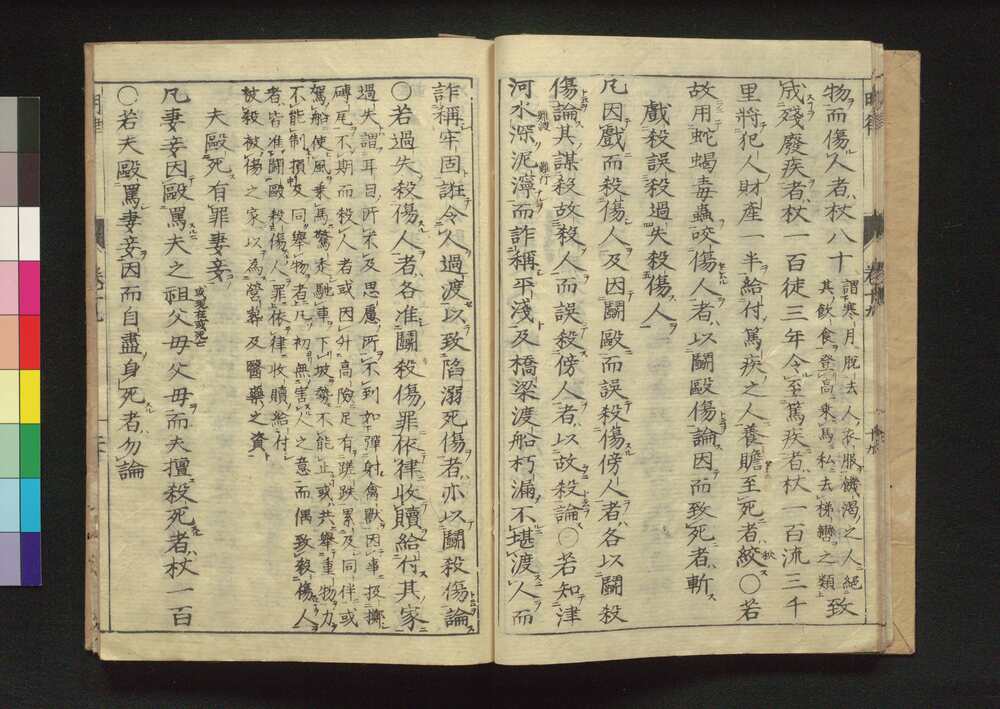 物而傷人者杖八十謂寒月脱去人衣服饑渇之人絶其飲食登高乗馬私去梯轡之類致
成殘廢疾者杖一百徒三年令至篤疾者杖一百流三千
里將犯人財産一半給付篤疾之人養贍至死者絞〇若
故用蛇蝎毒蟲咬傷人者以鬪毆傷論因而致死者斬
戲殺誤殺過失殺傷人
凡因戲而殺傷人及因鬪毆而誤殺傷傍人者各以鬪殺
傷論其謀殺故殺人而誤殺傍人者以故殺論〇若知津
河水深泥濘而詐稱平淺及橋梁渡船朽漏不堪渡人而
詐稱牢固誑令人過渡以致陷溺死傷者亦以鬪殺傷論
〇若過失殺傷人者各准鬪殺傷罪依律收贖給付其家
過失謂耳目所不及思慮所不到如彈射禽獸因事投擲
磚瓦不期而殺人者或因升高險足有蹉跌累及同伴或
駕船使風乗馬驚走馳車下坡勢不能止或共舉重物力
不能制損及同舉物者凡初無害人之意而偶致殺傷人
者皆准鬪毆殺傷人罪依律收贖給付
被殺被傷之家以為營葬及醫藥之資
夫毆死有罪妻妾
凡妻妾因毆罵夫之祖父母父母或現在或死亡而夫擅殺死者杖一百
〇若夫毆罵妻妾因而自盡身死者勿論
明律
卷十九